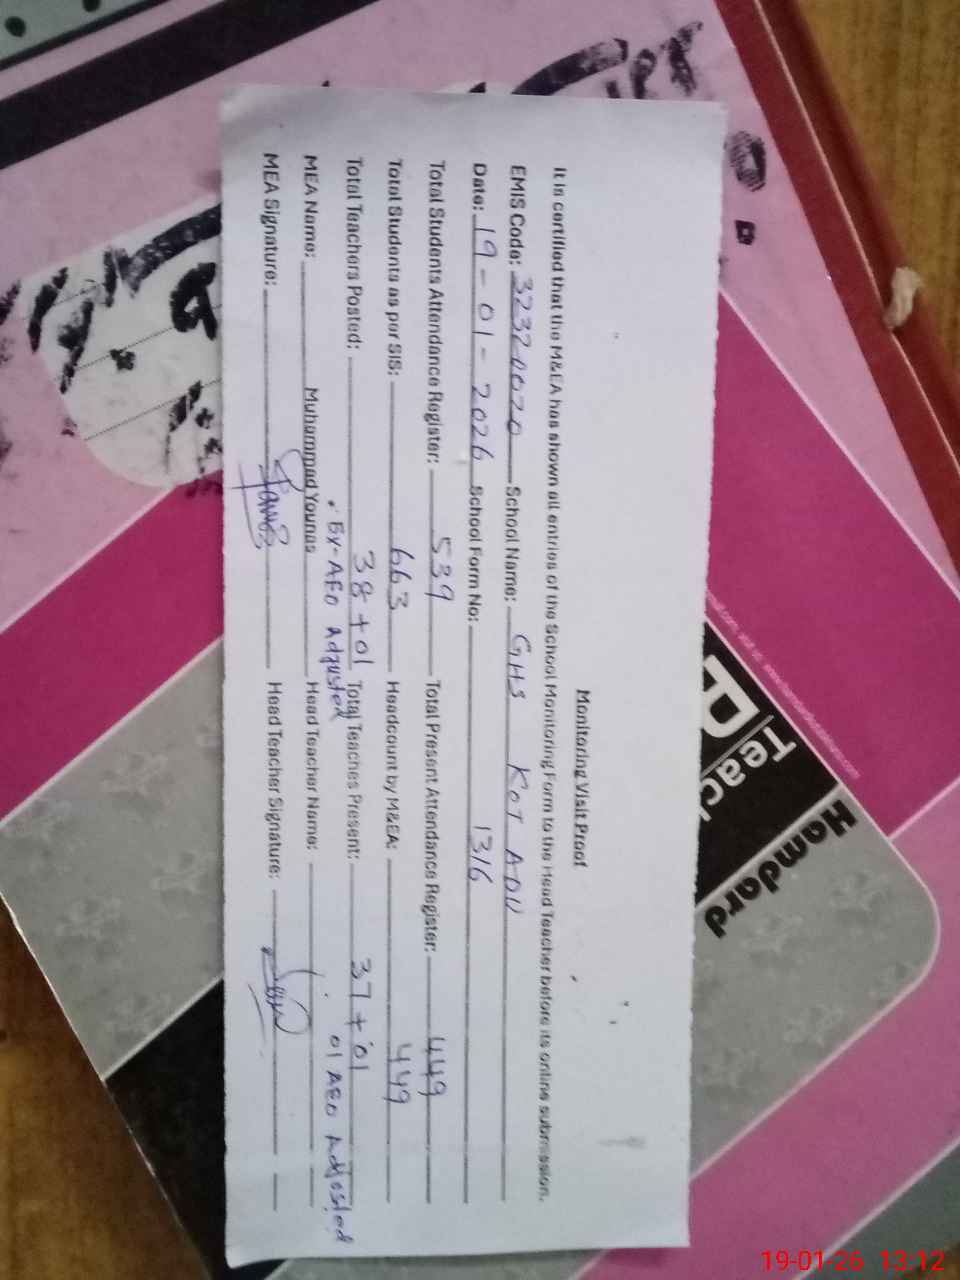 Monitoring Visit Proof
It is certified that the M&EA has shown all entries of the School Monitoring Form to the Head Teacher before its online submission.
EMIS Code: 32320020 School Name: GHS KOT ADU
Date: 19-01-2026 School Form No: 1316
Total Students Attendance Register: 539 Total Present Attendance Register: 449
Total Students as per SIS: 663 Headcount by M&EA: 449
Total Teachers Posted: 38+01 Total Teaches Present: 37+01
Ex-AEO Adjusted 01 AEO Adjusted
MEA Name: Muhammad Younas Head Teacher Name:
MEA Signature: Head Teacher Signature:
Hamdard
Teac
19-01-26 13:12